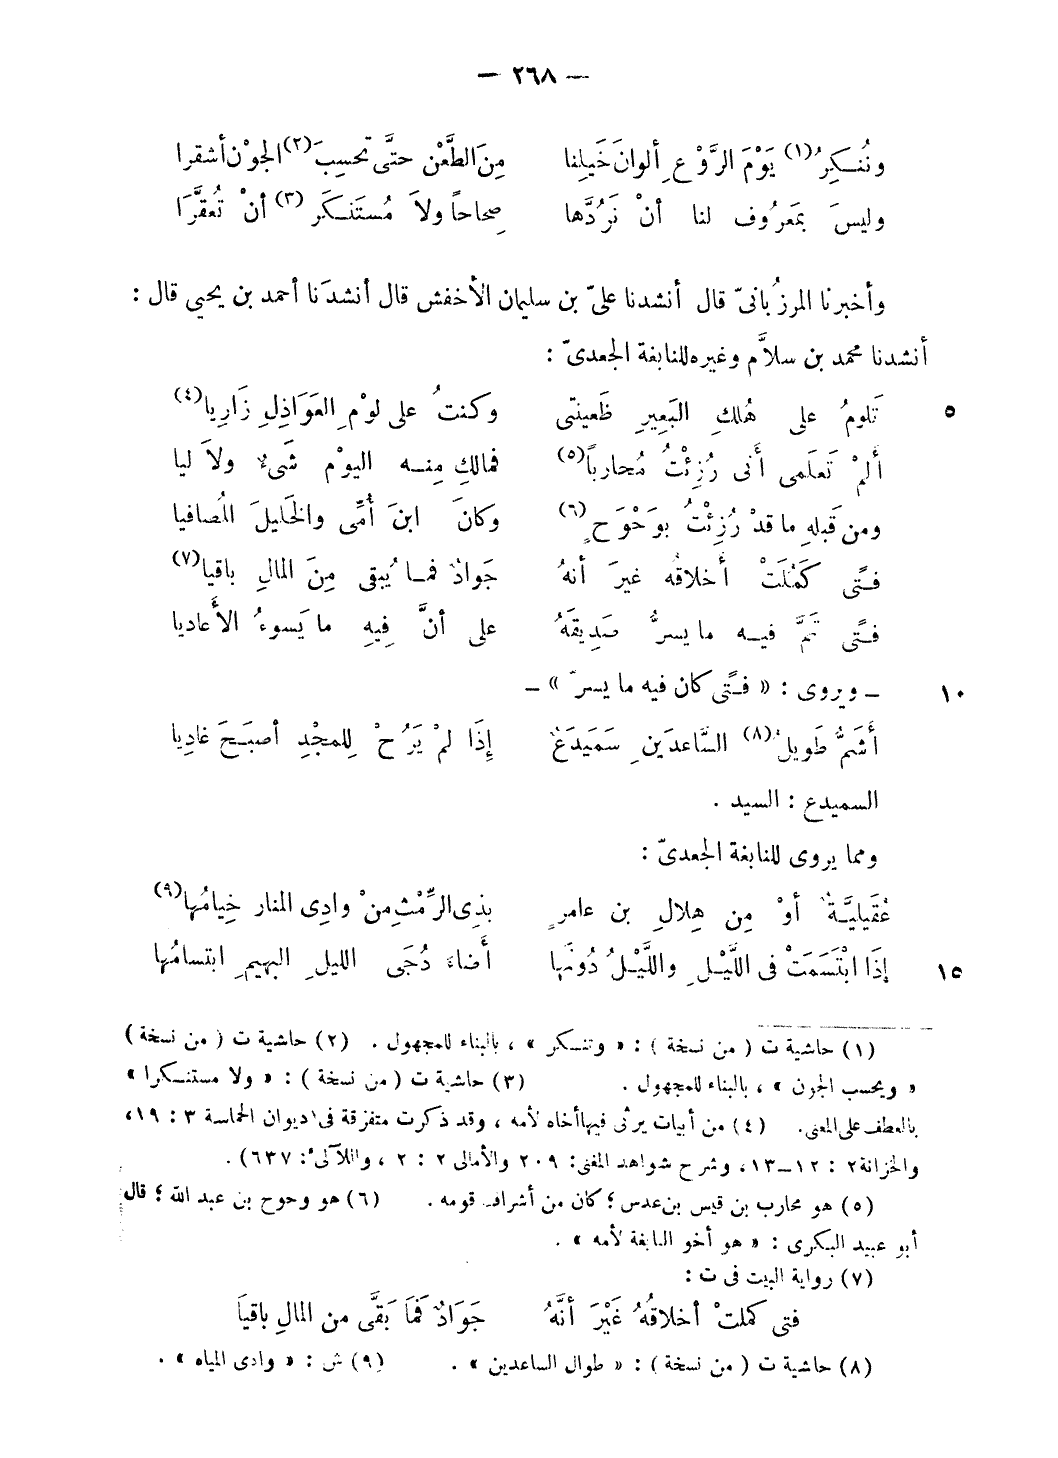 — ٢٦٨ —
ونُنكِرُ(١) يَوْمَ الرَّوْعِ ألوانَ خَيلِنا مِنَ الطَّعْن حتَّى تحسِبَ(٢) الجوْن أشقرا
وليسَ بمَعرُوف لنا أنْ نَرُدَّها صِحاحاً ولاَ مُستَنكَر(٣) أنْ تُعقرَّا
وأخبرنا المرزُبانىّ قال أنشدنا علىّ بن سليمان الأخفش قال أنشدَنا أحمد بن يحيى قال :
أنشدنا محمد بن سلاَّم وغيره للنابغة الجعدىّ :
٥ تَلومُ على هُلكِ البَعيرِ ظَعينتى وكنتُ على لوْمِ العَوَاذِلِ زَارِيا(٤)
أَلمْ تَعلَمى أَنى رُزِئْتُ مُحارباً(٥) فمالكِ مِنه اليوْم شَىءٌ ولاَ ليا
ومن قَبلهِ ما قدْ رُزِئْتُ بوَحْوَحٍ(٦) وكانَ ابنَ أُمِّى والخَليلَ المُصافيا
فتًى كَمُلَتْ أَخلاقُه غيرَ أنهُ جَوادٌ فما يُبقى مِنَ المالِ باقيا(٧)
فتًى تمَّ فيه ما يسرُّ صَدِيقَهُ على أنَّ فِيهِ ما يَسوءُ الأَعاديا
١٠ ــ ويروى : « فتًى كان فيه ما يسرّ » ــ
أَشَمُّ طَويلُ(٨) السَّاعدَينِ سَمَيدَعٌ إِذَا لمْ يَرُحْ لِلمجْدِ أصبَحَ غادِيا
السميدع : السيد .
ومما يروى للنابغة الجعدىّ :
عُقَيليَّةٌ أوْ مِن هِلالِ بن عامرٍ بذِى الرِّمْثِ مِنْ وادِى المنار خِيامُها(٩)
١٥ إِذَا ابْتَسَمَتْ فى اللَّيْلِ واللَّيْلُ دُونَها أَضاءَ دُجَى الليلِ البهيمِ ابتسامُها
(١) حاشية ت ( من نسخة ) : « وتنكر » ، بالبناء للمجهول . (٢) حاشية ت ( من نسخة )
« ويحسب الجون » ، بالبناء للمجهول . (٣) حاشية ت ( من نسخة ) : « ولا مستنكرا »
بالعطف على المعنى. (٤) من أبيات يرثى فيها أخاه لأمه ، وقد ذكرت متفرقة فى ديوان الحماسة ٣ : ١٩،
والخزانة ٢ : ١٢ــ١٣، وشرح شواهد المغنى: ٢٠٩ والأمالى ٢ : ٢ ، واللآلىء: ٦٣٧) .
(٥) هو محارب بن قيس بن عدس ؛ كان من أشراف قومه . (٦) هو وحوح بن عبد الله ؛ قال
أبو عبيد البكرى : « هو أخو النابغة لأمه » .
(٧) رواية البيت فى ت :
فتى كملتْ أخلاقُهُ غَيْرَ أنَّهُ جَوَادٌ فَمَا بَقَّى من المالِ باقيَا
(٨) حاشية ت ( من نسخة ) : « طوال الساعدين » . (٩) ش : « وادى المياه » .